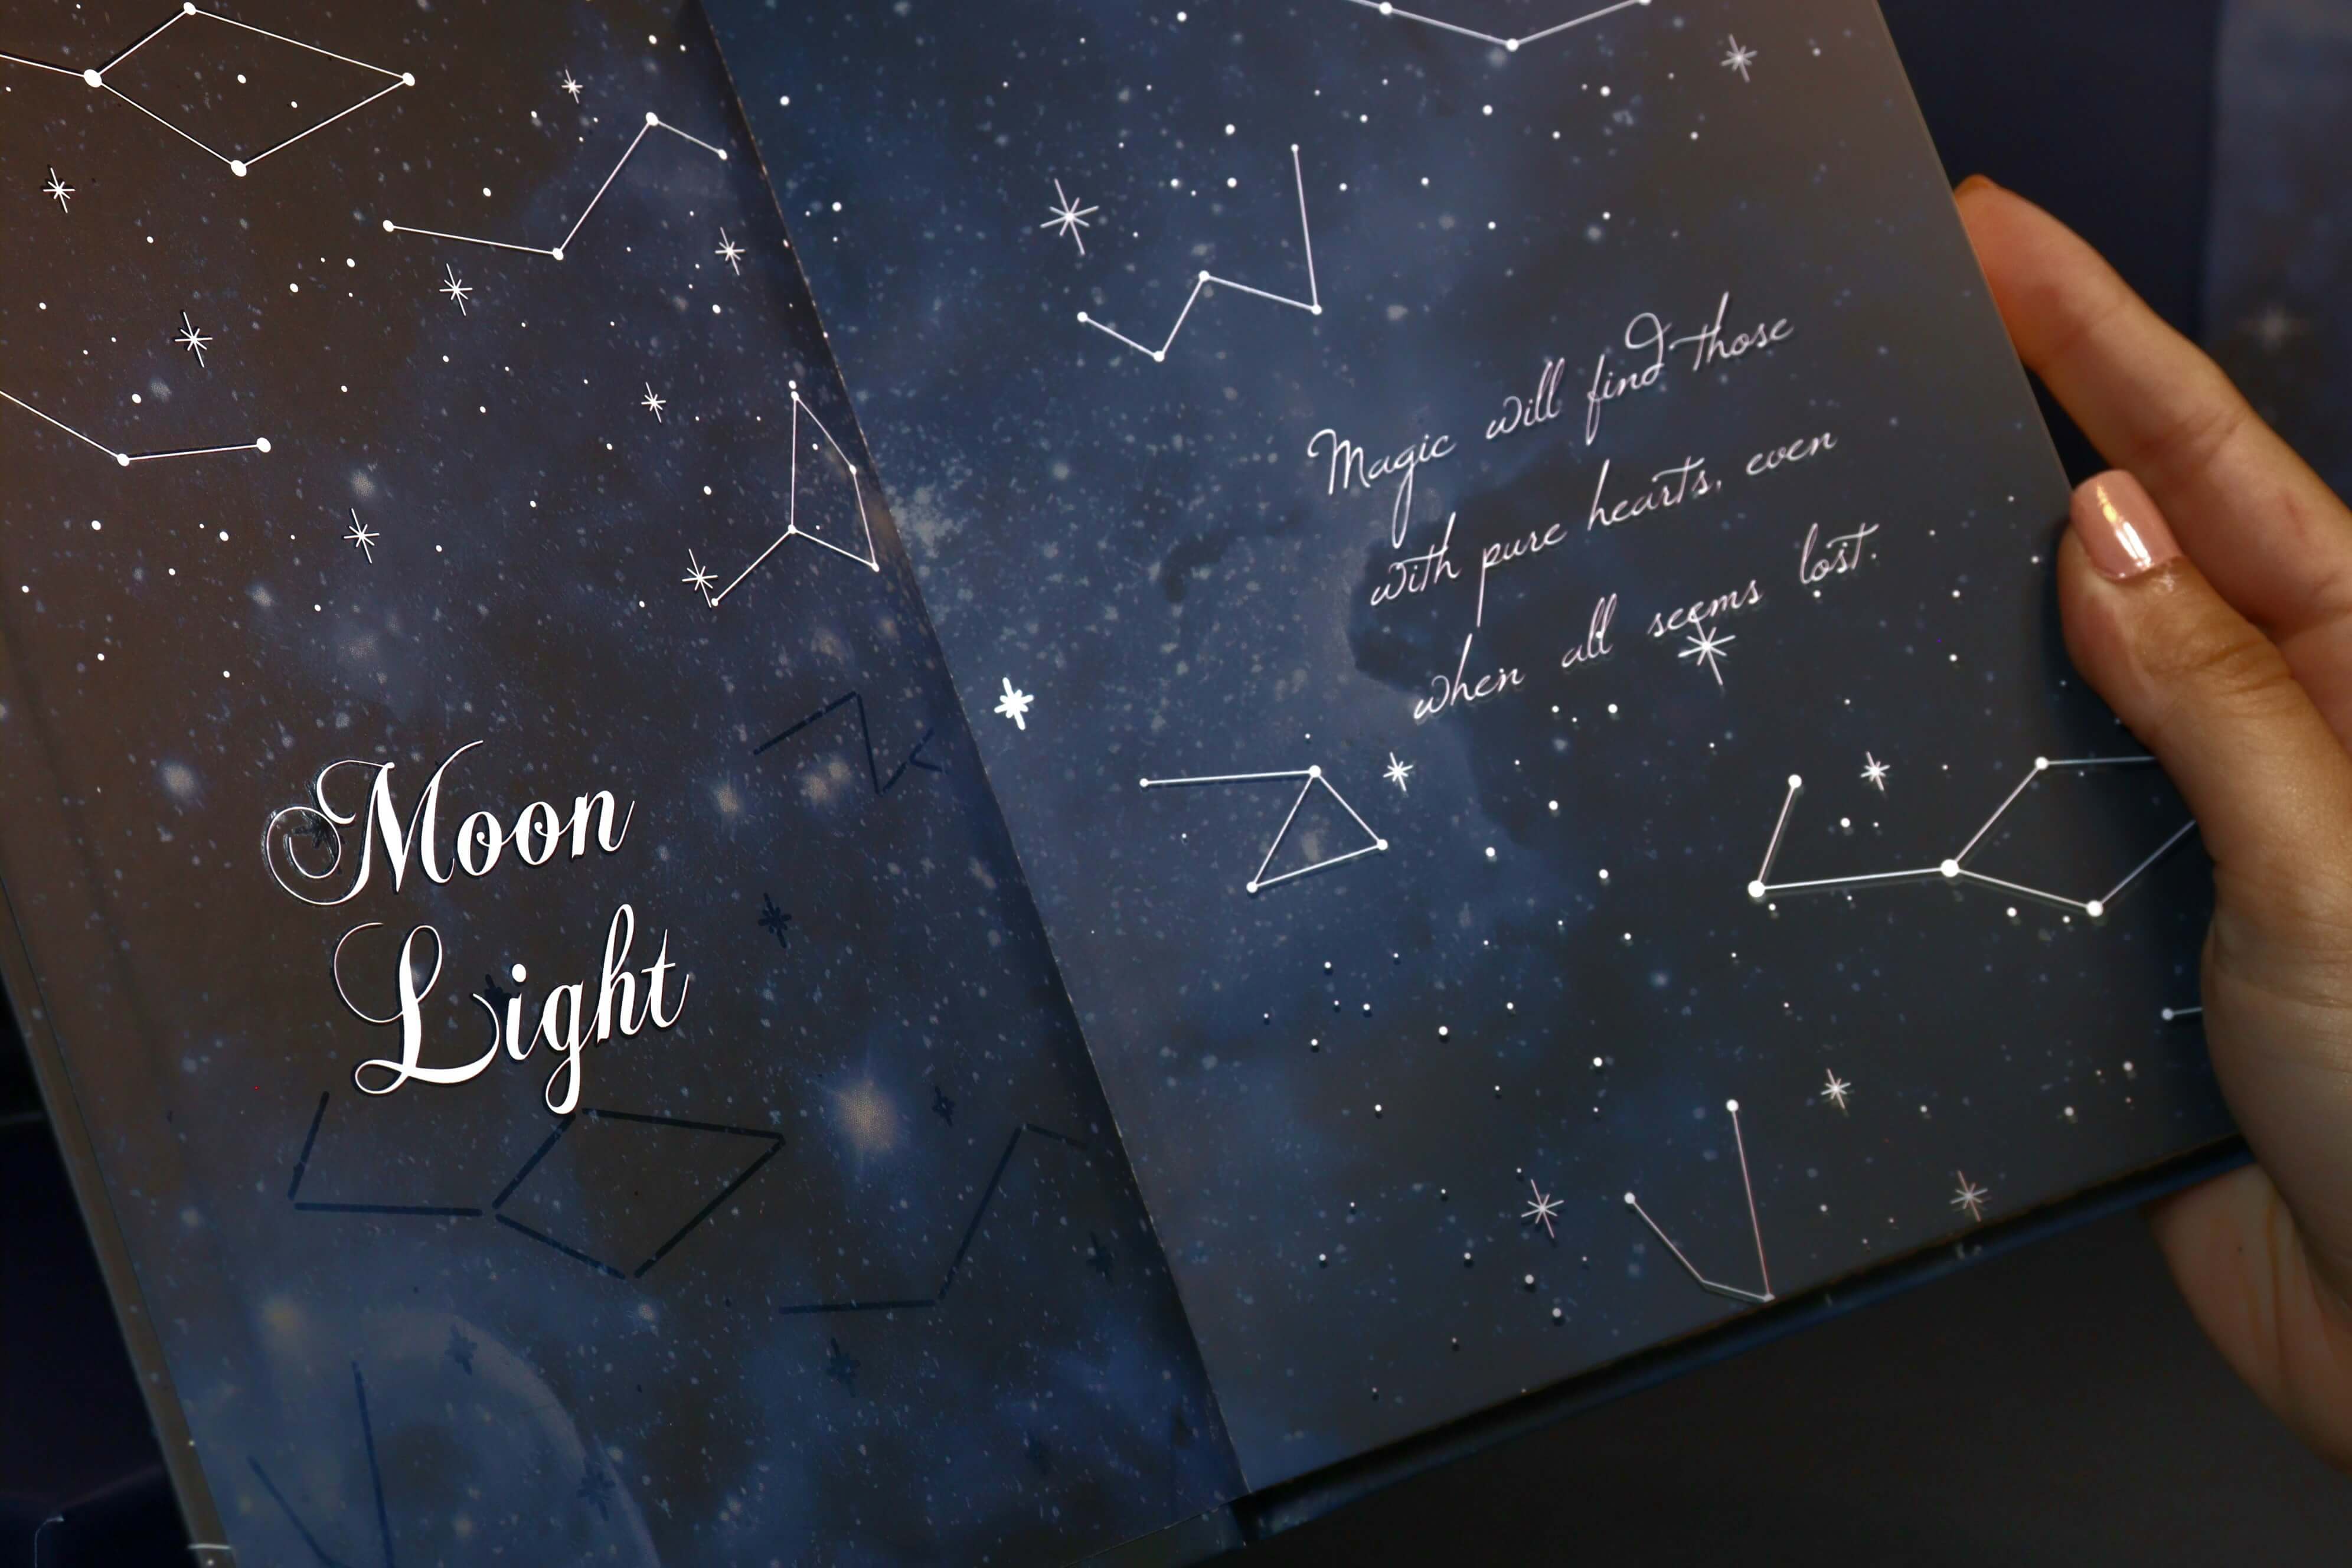 Moon
Light
Magic will find those
with pure hearts, even
when all seems lost.